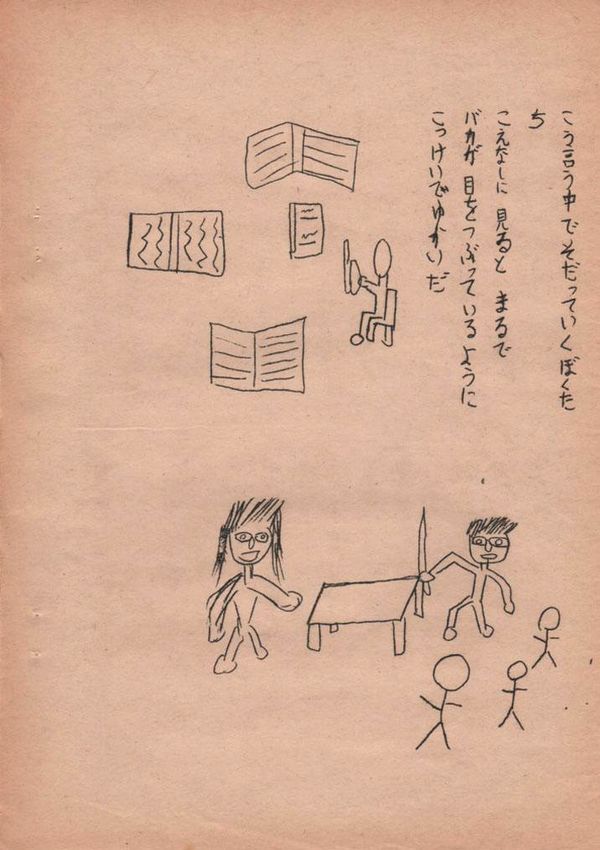 こう言う中でそだっていくぼくた
ち
こえなしに見るとまるで
バカが目をつぶっているように
こっけいでゆかいだ